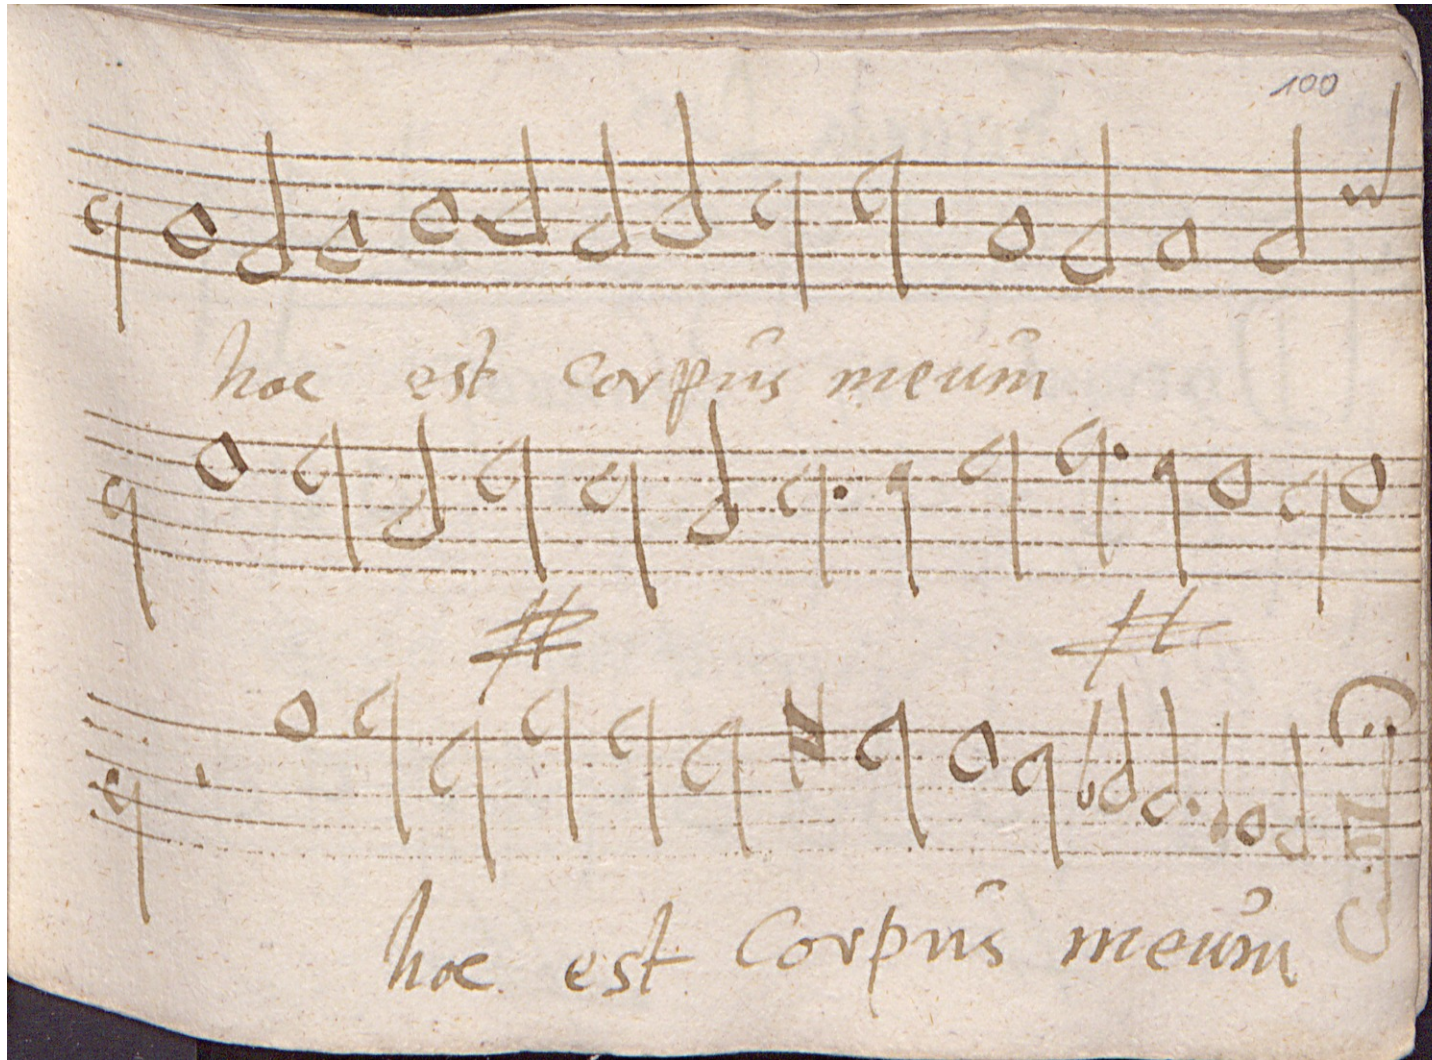 100
hoc est corpus meum
hoc est Corpus meum